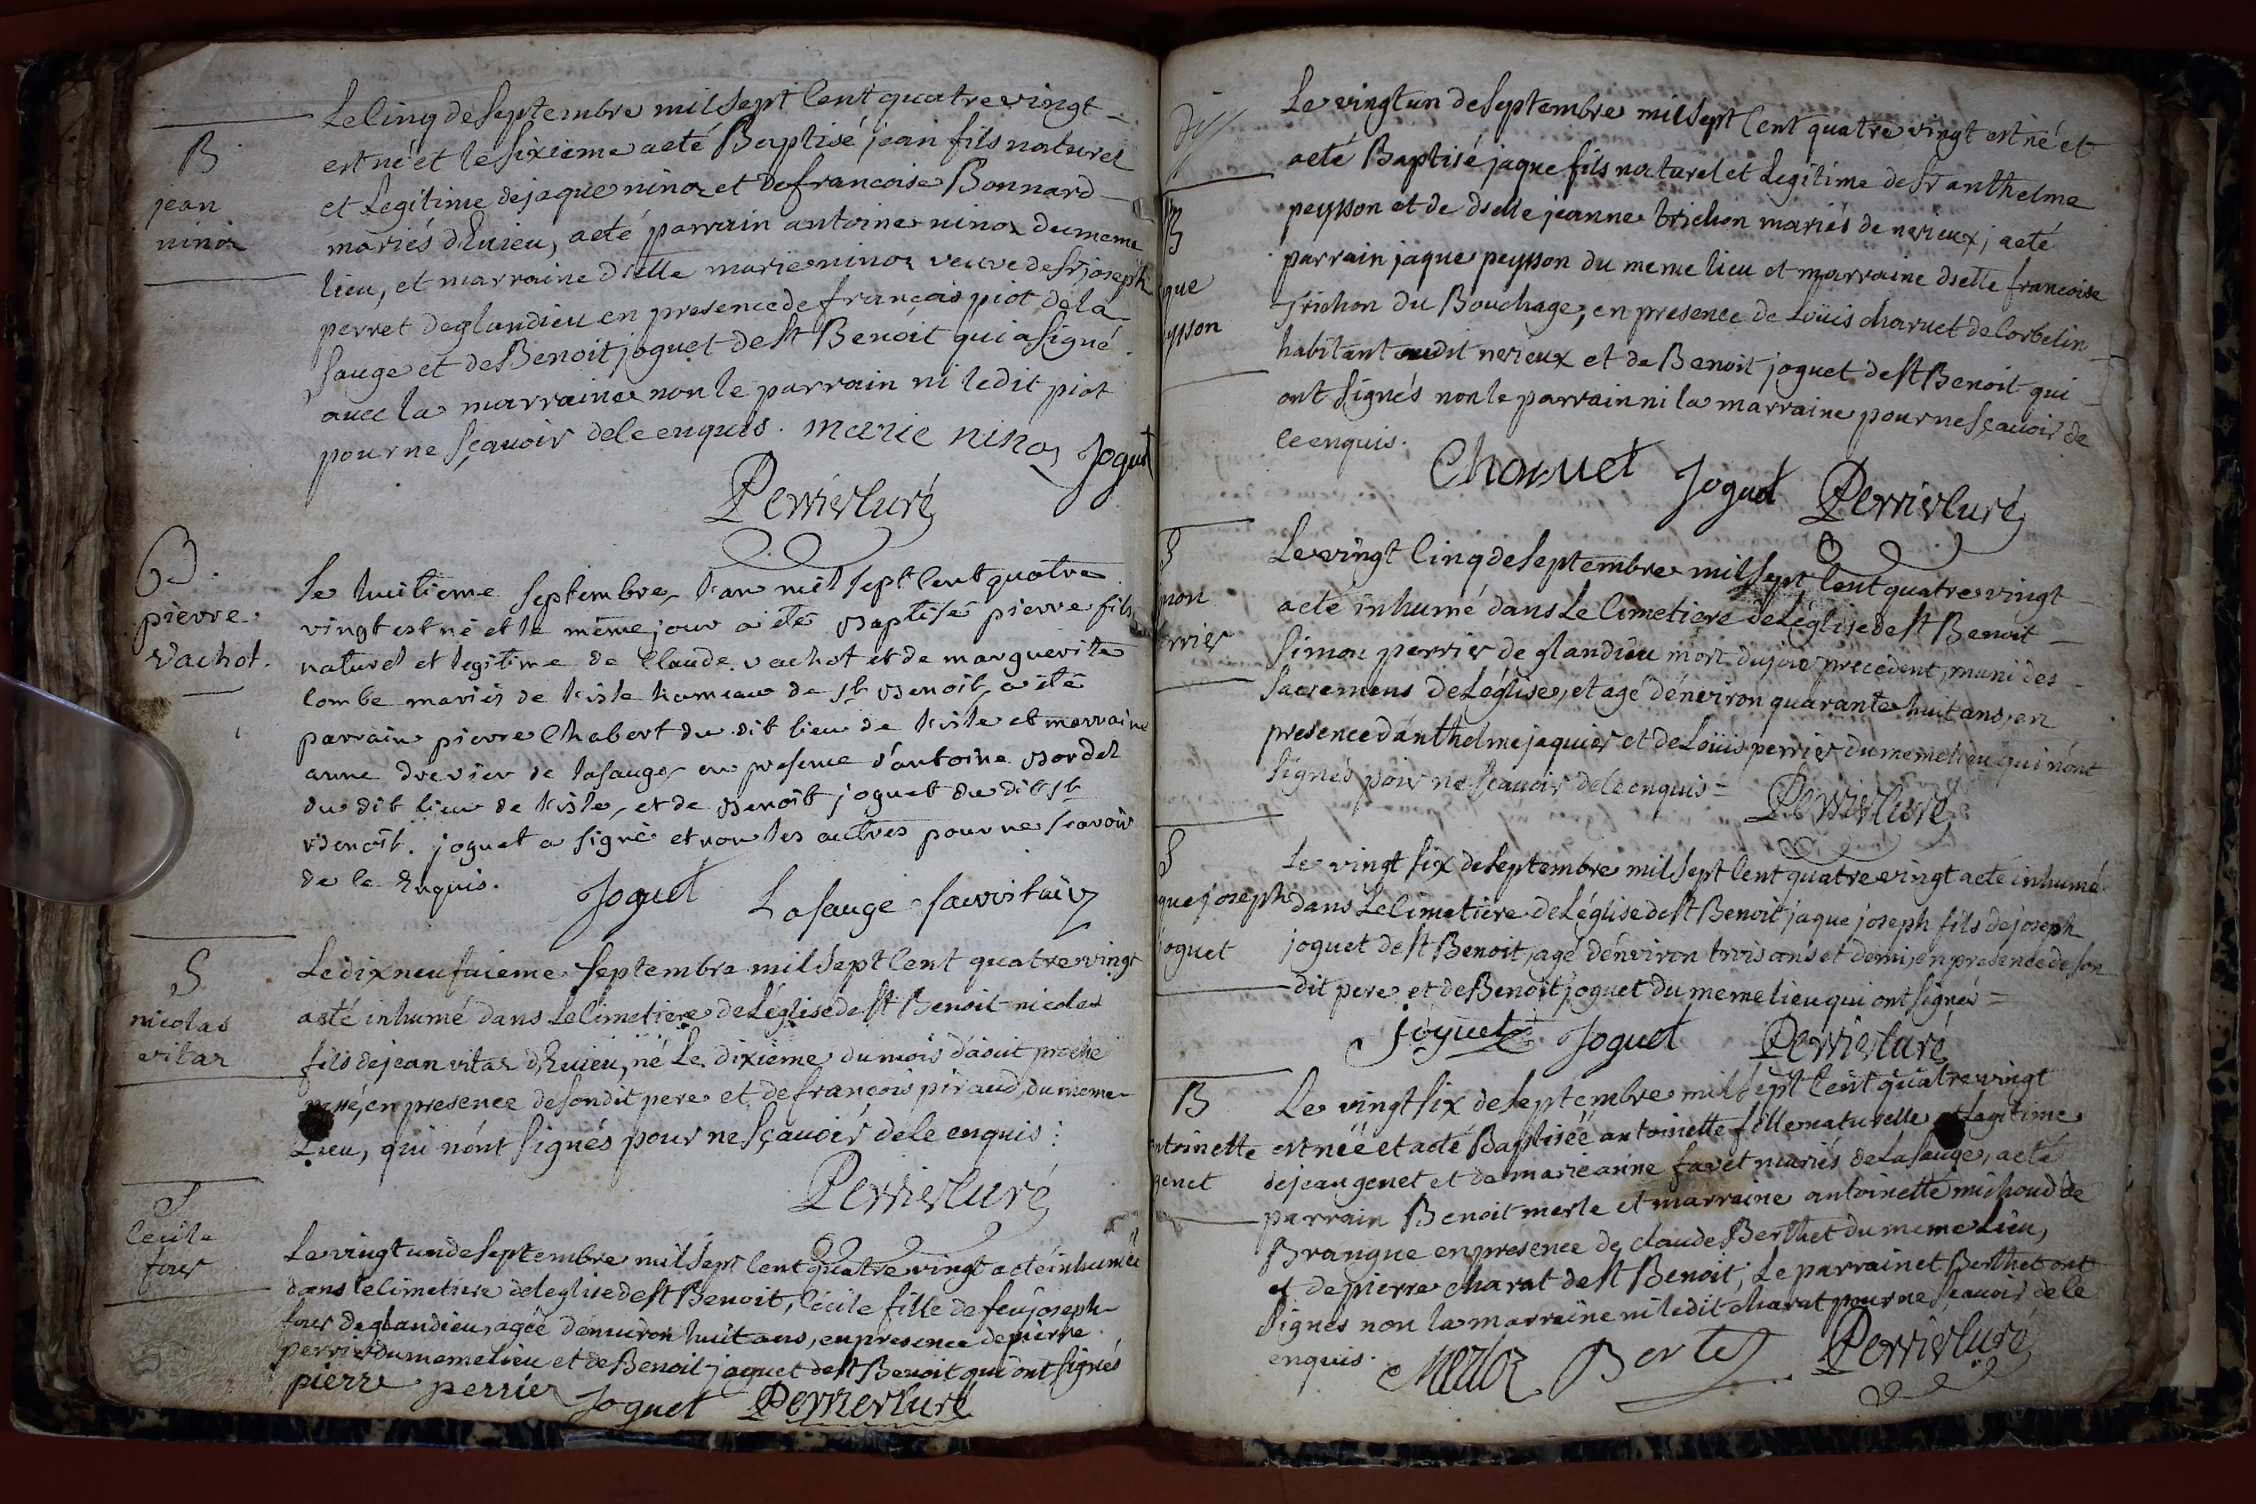 B
jean
ninoz
Le cinq de septembre mil sept cent quatre vingt
est né et le sixieme a eté Baptisé jean fils naturel
et Legitime de jaque ninoz et de francoise Bonnard
mariés d'huieu, a eté parrain antoine ninoz du meme
lieu, et marraine dlle marie ninoz veuve de sr joseph
perret de glandieu en presence de françois piot de la
sauge et de Benoit joguet de st Benoit qui a signé
avec la marraine non le parrain ni ledit piot
pour ne sçavoir de ce enquis. marie ninoz Joguet
Perrier Curé
B
pierre
vachot.
Le huitieme septembre, l'an mil sept cent quatre
vingt est né et le même jour a été baptisé pierre fils
naturel et legitime de Claude vachot et de marguerite
Combe mariés de l'isle hameau de st Benoit, a été
parrain pierre Chabert du dit lieu de l'isle et marraine
anne drevier de lasauge, en presence d'antoine Bordel
du dit lieu de l'isle, et de Benoit joguet du dit st
Benoit. joguet a signé et non les autres pour ne scavoir
de ce Enquis.
Joguet Lasauge
S
nicolas
vitaz
Le dix neufuieme septembre mil sept cent quatre vingt
a eté inhumé dans le Cimetiere de L'église de st Benoit nicolas
fils de jean vitaz d'huieu, né Le dixieme du mois d'aout proche
passé, en presence de son dit pere et de françois piraud, du meme
Lieu, qui n'ont signés pour ne sçauoir de ce enquis :
Perrier Curé
S
Cecile
four
Le vingt un de septembre mil sept cent quatre vingt a eté inhumée
dans le Cimetiere de l'eglise de st Benoit, Cécile fille de feu joseph
four de glandieu, agée d'enuiron huit ans, en presence de pierre
perrier du meme lieu et de Benoit joguet de st Benoit qui ont signés
pierre perrier Joguet Perrier Curé
B
que
ysson
Le vingt un de septembre mil sept Cent quatre vingt est né et
a eté Baptisé jaque fils naturel et Legitime de sr anthelme
peysson et de dselle jeanne trichon mariés de nerieux; a eté
parrain jaque peysson du meme lieu et marraine dselle francoise
Trichon du Bouchage, en presence de Loüis charuet de Corbelin
habitant audit nerieux et de Benoit joguet de st Benoit qui
ont signés non le parrain ni la marraine pour ne sçavoir de
ce enquis.
Charuet Joguet Perrier Curé
S
mon
rrier
Le vingt Cinq de septembre mil sept Cent quatre vingt
a eté inhumé dans Le Cimetiere de L'église de st Benoit
simon perrier de glandieu mort du jour precedent, muni des
sacremens de L'église, et agé d'énviron quarante huit ans, en
presence d'anthelme jaquier et de Loüis perrier du meme lieu qui n'ont
signés pour ne sçavoir de ce enquis =
Perrier Curé
S
que joseph
oguet
Le vingt six de septembre mil sept Cent quatre vingt a eté inhumé
dans Le Cimetiere de L'église de st Benoit jaque joseph fils de joseph
joguet de st Benoit, agé d'énviron trois ans et demi, en presence de son
dit pere et de Benoit joguet du meme lieu qui ont signés =
joguet Joguet Perrier Curé
B
ntoinette
genet
Le vingt six de septembre mil sept Cent quatre vingt
est néé et a eté Baptiséé antoinette fille naturelle et Legitime
de jean genet et de marie anne favet mariés de Lasauge, a eté
parrain Benoit merle et marraine antoinette michoud de
Brangue en presence de claude Berthet du meme Lieu,
et de pierre charat de st Benoit; Le parrain et Berthet ont
signés non la marraine ni ledit charat pour ne scavoir de ce
enquis.
Merloz Bertet Perrier Curé